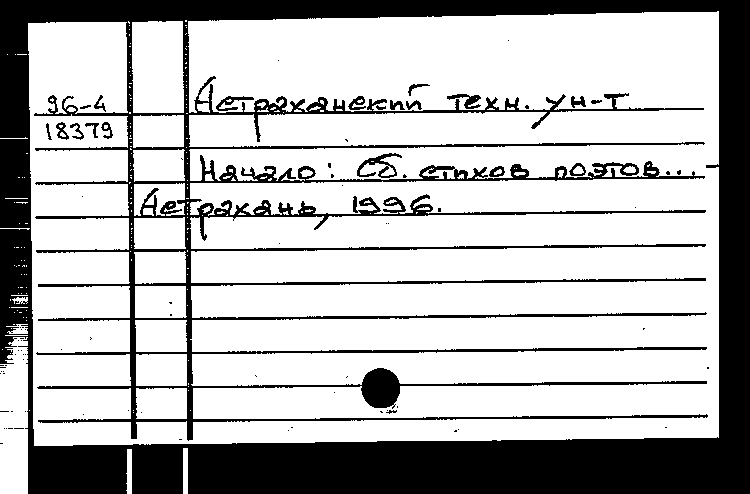 96-4 Астраханский техн. ун-т
18379
Начало: Сб. стихов поэтов... -
Астрахань, 1996.